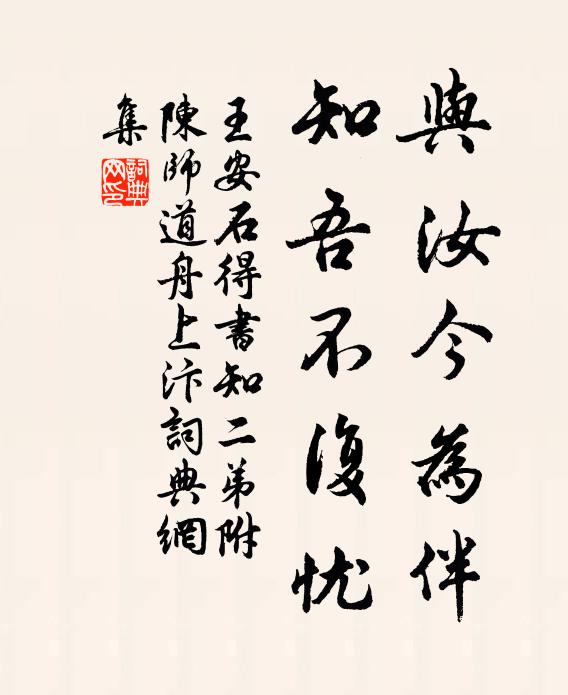 與汝今為伴
知吾不復忧
王安石得書知二弟附
陳師道舟上汴詞典網
集
詞典
网印